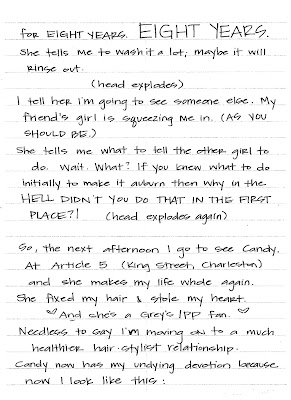 for EIGHT YEARS. EIGHT YEARS.
She tells me to wash it a lot; maybe it will
rinse out.
(head explodes)
I tell her I'm going to see someone else. My
friend's girl is squeezing me in. (AS YOU
SHOULD BE.)
She tells me what to tell the other girl to
do. Wait. What? If you knew what to do
initially to make it auburn then why in the
HELL DIDN'T YOU DO THAT IN THE FIRST
PLACE?! (head explodes again)
So, the next afternoon I go to see Candy.
At Article 5 (King Street, Charleston)
and she makes my life whole again.
She fixed my hair & stole my heart.
♡ And she's a Grey's/PP fan. ♡
Needless to say I'm moving on to a much
healthier hair-stylist relationship.
Candy now has my undying devotion because
now I look like this: